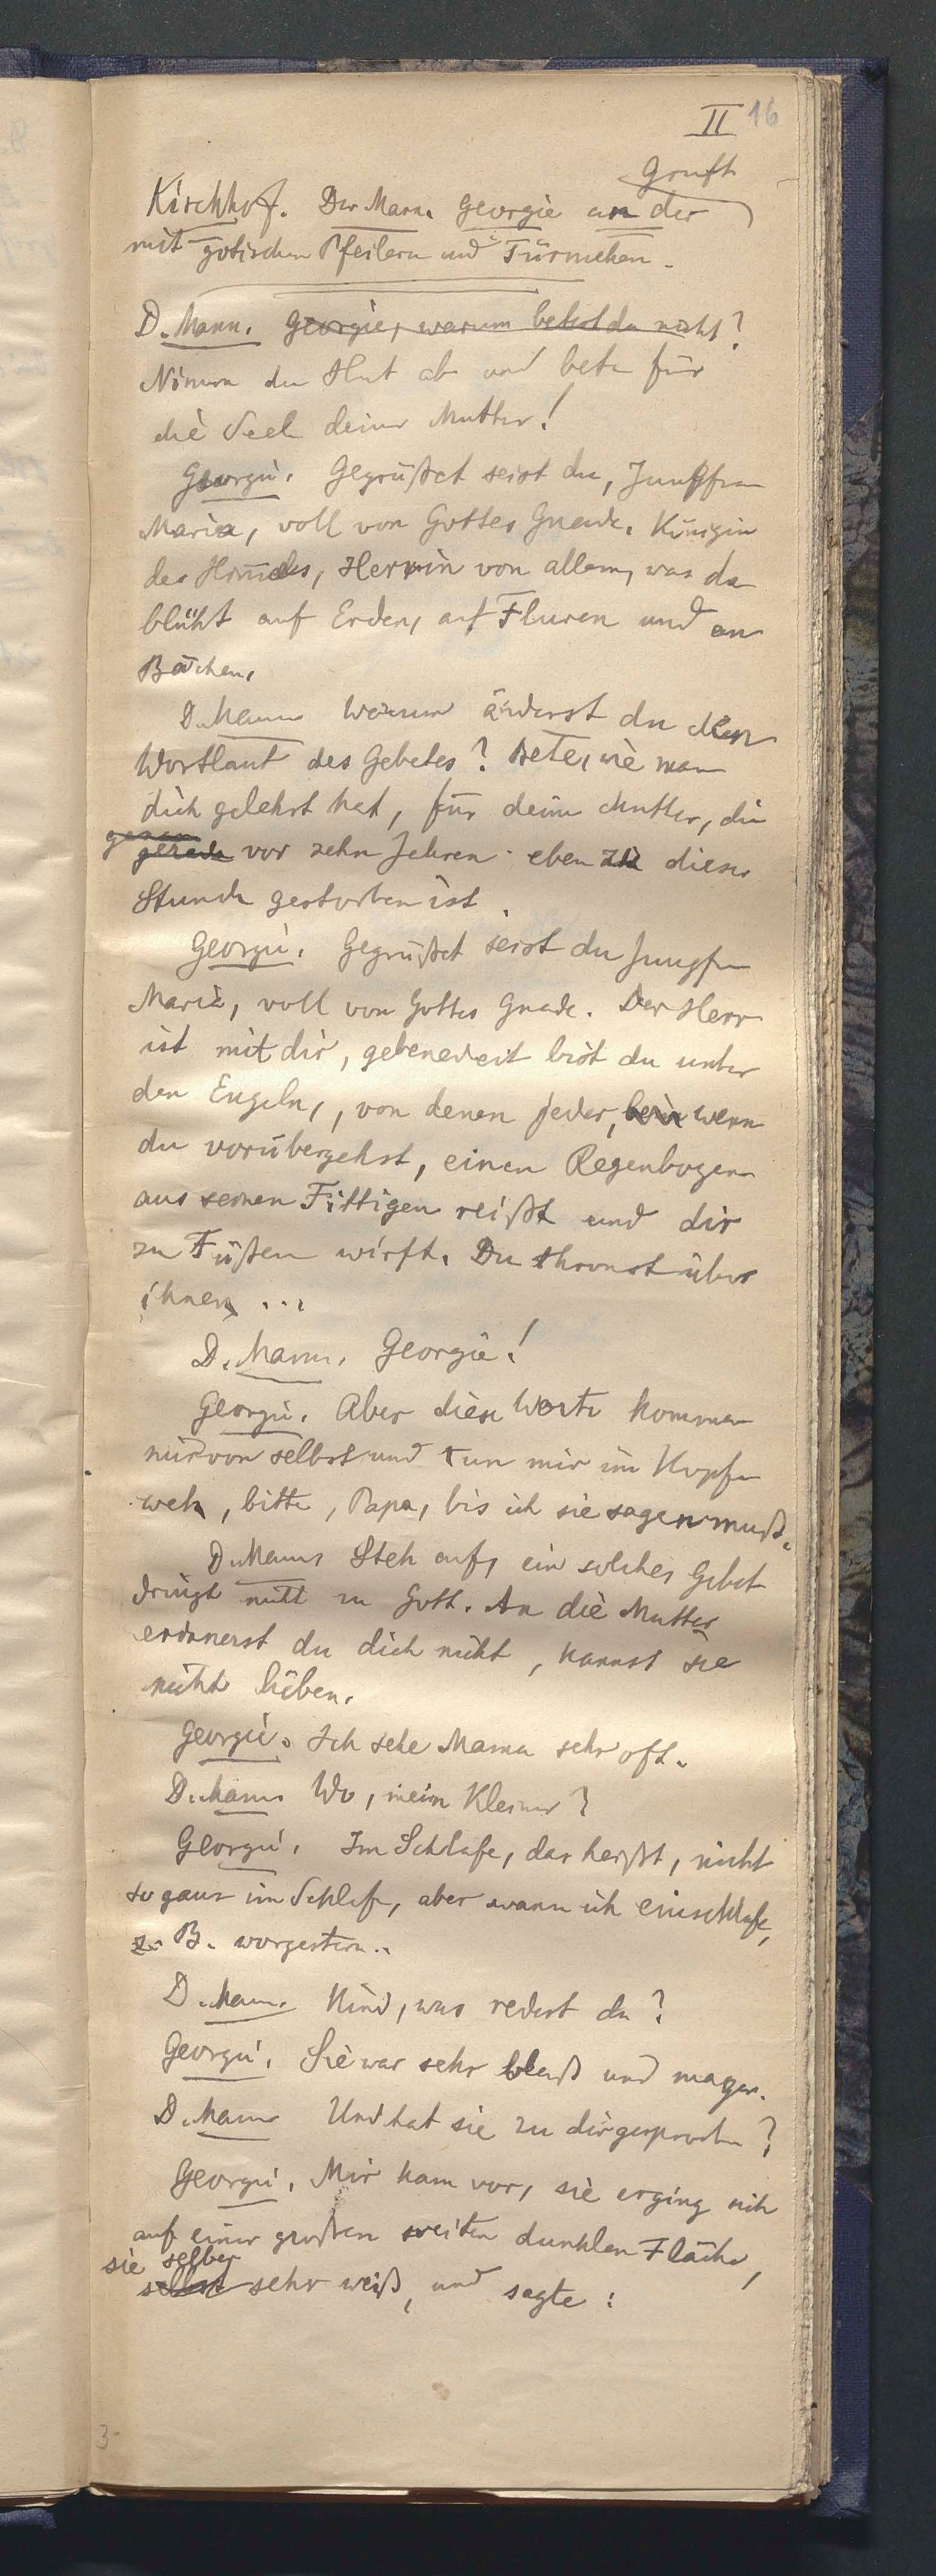 II 16
Gruft
Kirchhof. Der Mann. Georgie an der
mit gotischen Pfeilern und Türmchen.
D. Mann. Georgie, warum betest du nicht?
Nimm den Hut ab und bete für
die Seele deiner Mutter!
Georgie. Gegrüßet seist du, Jungfrau
Maria, voll von Gottes Gnade. Königin
des Himmels, Herrin von allem, was da
blüht auf Erden, auf Fluren und an
Bächen,
D. Mann Warum änderst du den
Wortlaut des Gebetes? Bete, wie man
dich gelehrt hat, für deine Mutter, die
genau
gerade vor zehn Jahren eben zu dieser
Stunde gestorben ist.
Georgie. Gegrüßet seist du Jungfrau
Maria, voll von Gottes Gnade. Der Herr
ist mit dir, gebenedeit bist du unter
den Engeln, von denen jeder, wenn
du vorübergehst, einen Regenbogen
aus seinen Fittigen reißt und dir
zu Füßen wirft. Du thronst über
ihnen ...
D. Mann. Georgie!
Georgie. Aber diese Worte kommen
mir von selbst und tun mir im Kopfe
weh, bitte, Papa, bis ich sie sagen muß.
D. Mann Steh auf, ein solches Gebet
dringt nicht zu Gott. An die Mutter
erinnerst du dich nicht, kannst sie
nicht lieben.
Georgie. Ich sehe Mama sehr oft.
D. Mann Wo, mein Kleiner?
Georgie. Im Schlafe, das heißt, nicht
so ganz im Schlafe, aber wann ich einschlafe,
z. B. vorgestern..
D. Mann. Kind, was redest du?
Georgie. Sie war sehr blaß und mager.
D. Mann Und hat sie zu dir gesprochen?
Georgie. Mir kam vor, sie erging sich
auf einer großen weiten dunklen Fläche,
sie selber
selbst sehr weiß, und sagte:
3